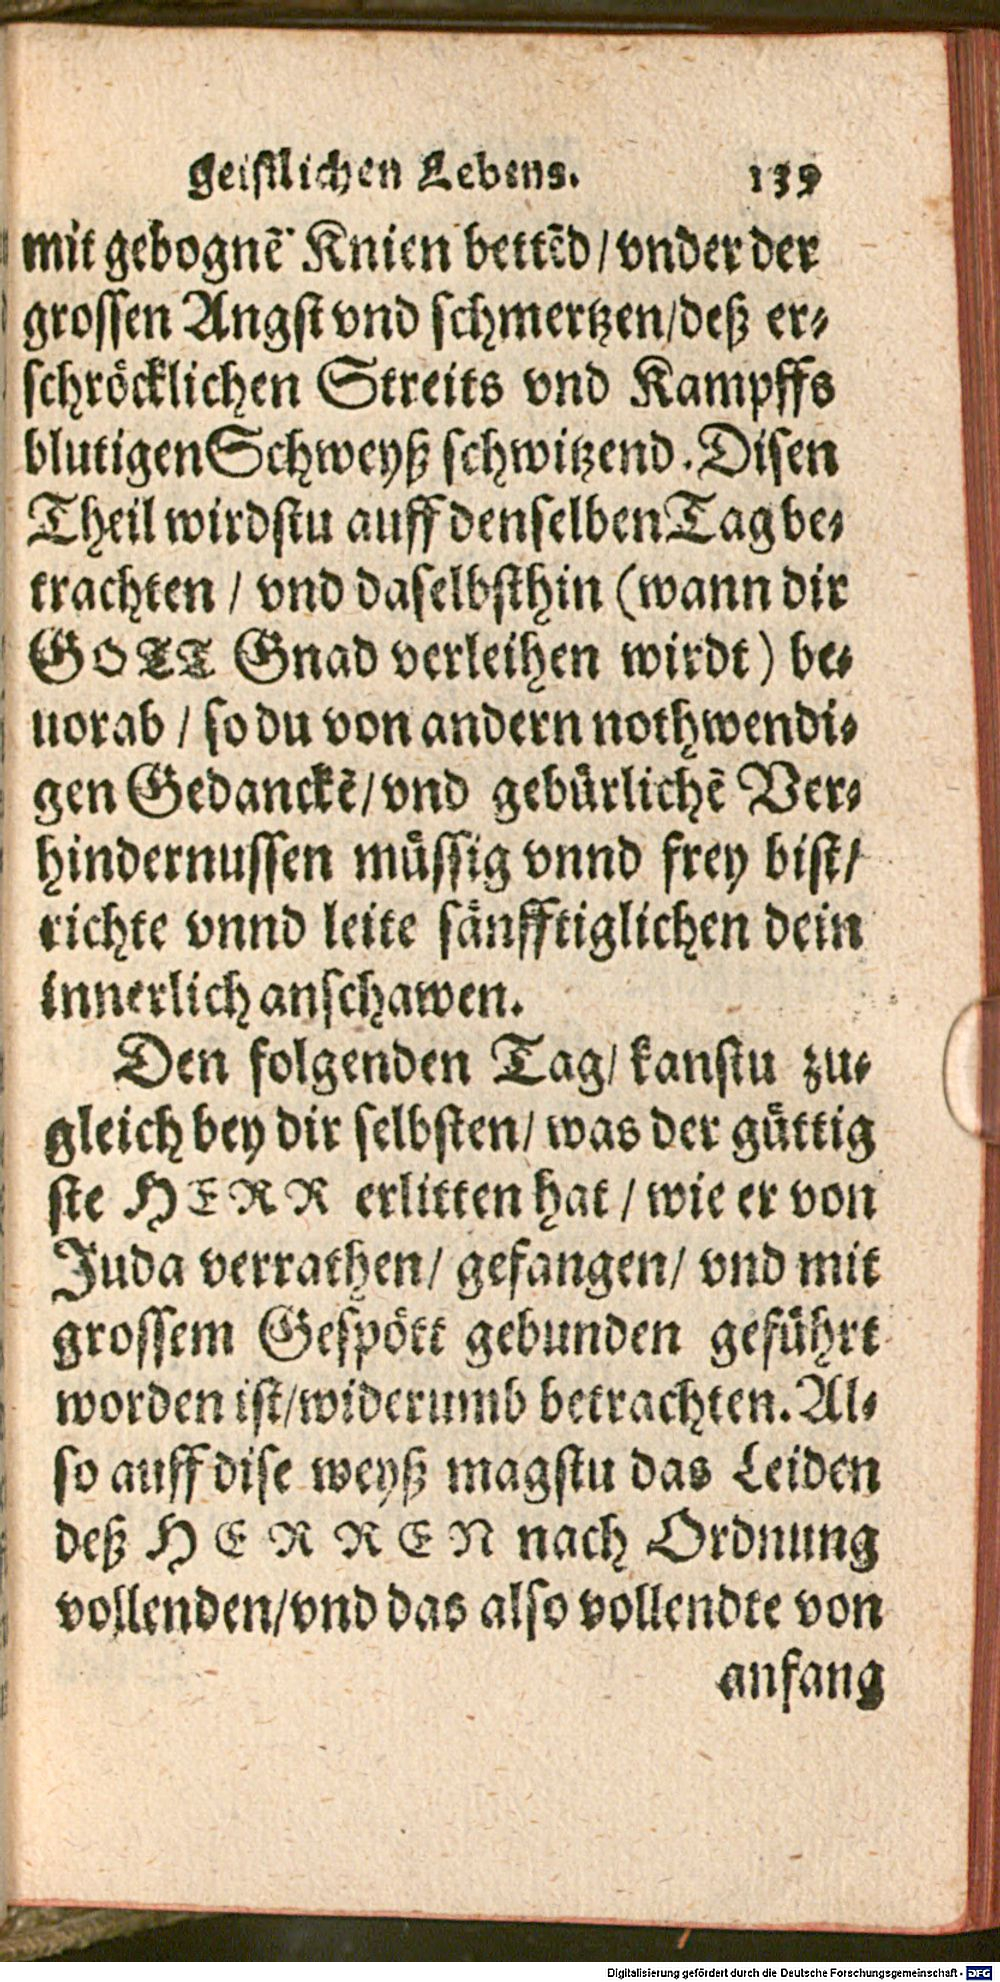 geistlichen Lebens. 139
mit gebognẽ Knien bettẽd/ vnder der
grossen Angst vnd schmertzen/deß er-
schröcklichen Streits vnd Kampffs
blutigen Schweyß schwitzend. Disen
Theil wirdstu auff denselben Tag be-
trachten / vnd daselbsthin (wann dir
GOTT Gnad verleihen wirdt) be-
uorab / so du von andern nothwendi-
gen Gedanckẽ/ vnd gebürlichẽ Ver-
hindernussen müssig vnnd frey bist/
richte vnnd leite sänfftiglichen dein
innerlich anschawen.
Den folgenden Tag/ kanstu zu-
gleich bey dir selbsten/ was der güttig
ste HERR erlitten hat / wie er von
Juda verrathen/ gefangen/ vnd mit
grossem Gespött gebunden geführt
worden ist/widerumb betrachten. Al-
so auff dise weyß magstu das Leiden
deß HERREN nach Ordnung
vollenden/vnd das also vollendte von
anfang
Digitalisierung gefördert durch die Deutsche Forschungsgemeinschaft - DFG